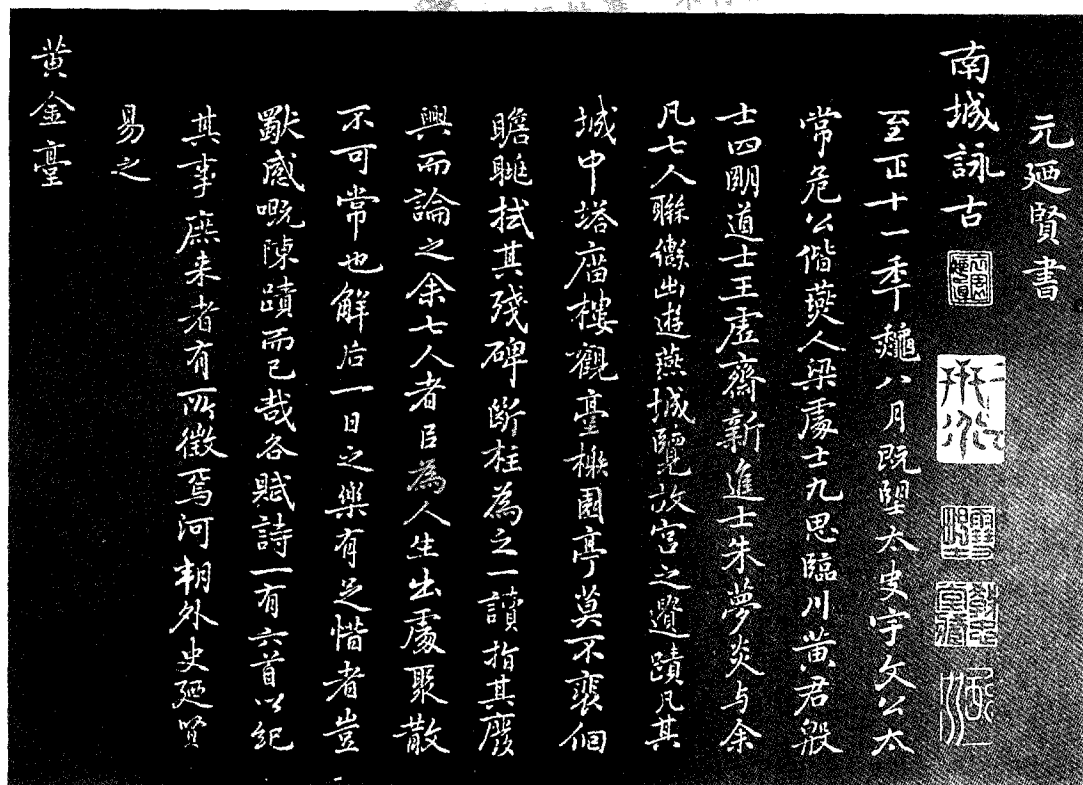 元廼賢書
南城詠古
至正十一年龝八月既望太史宇文公太
常危公偕燕人梁處士九思臨川黄君殷
士四明道士王虛齋新進士朱夢炎与余
凡七人聯轡出遊燕城覽故宮之遺蹟凡其
城中塔廟樓觀臺榭園亭莫不裵佪
瞻眺拭其殘碑斷柱為之一讀指其廢
興而論之余七人者㠯為人生出處聚散
不可常也解后一日之樂有足惜者豈
獨感嘅陳蹟而已哉各賦詩一有六首以紀
其事庶来者有所徵焉河朔外史廼賢
易之
黃金臺